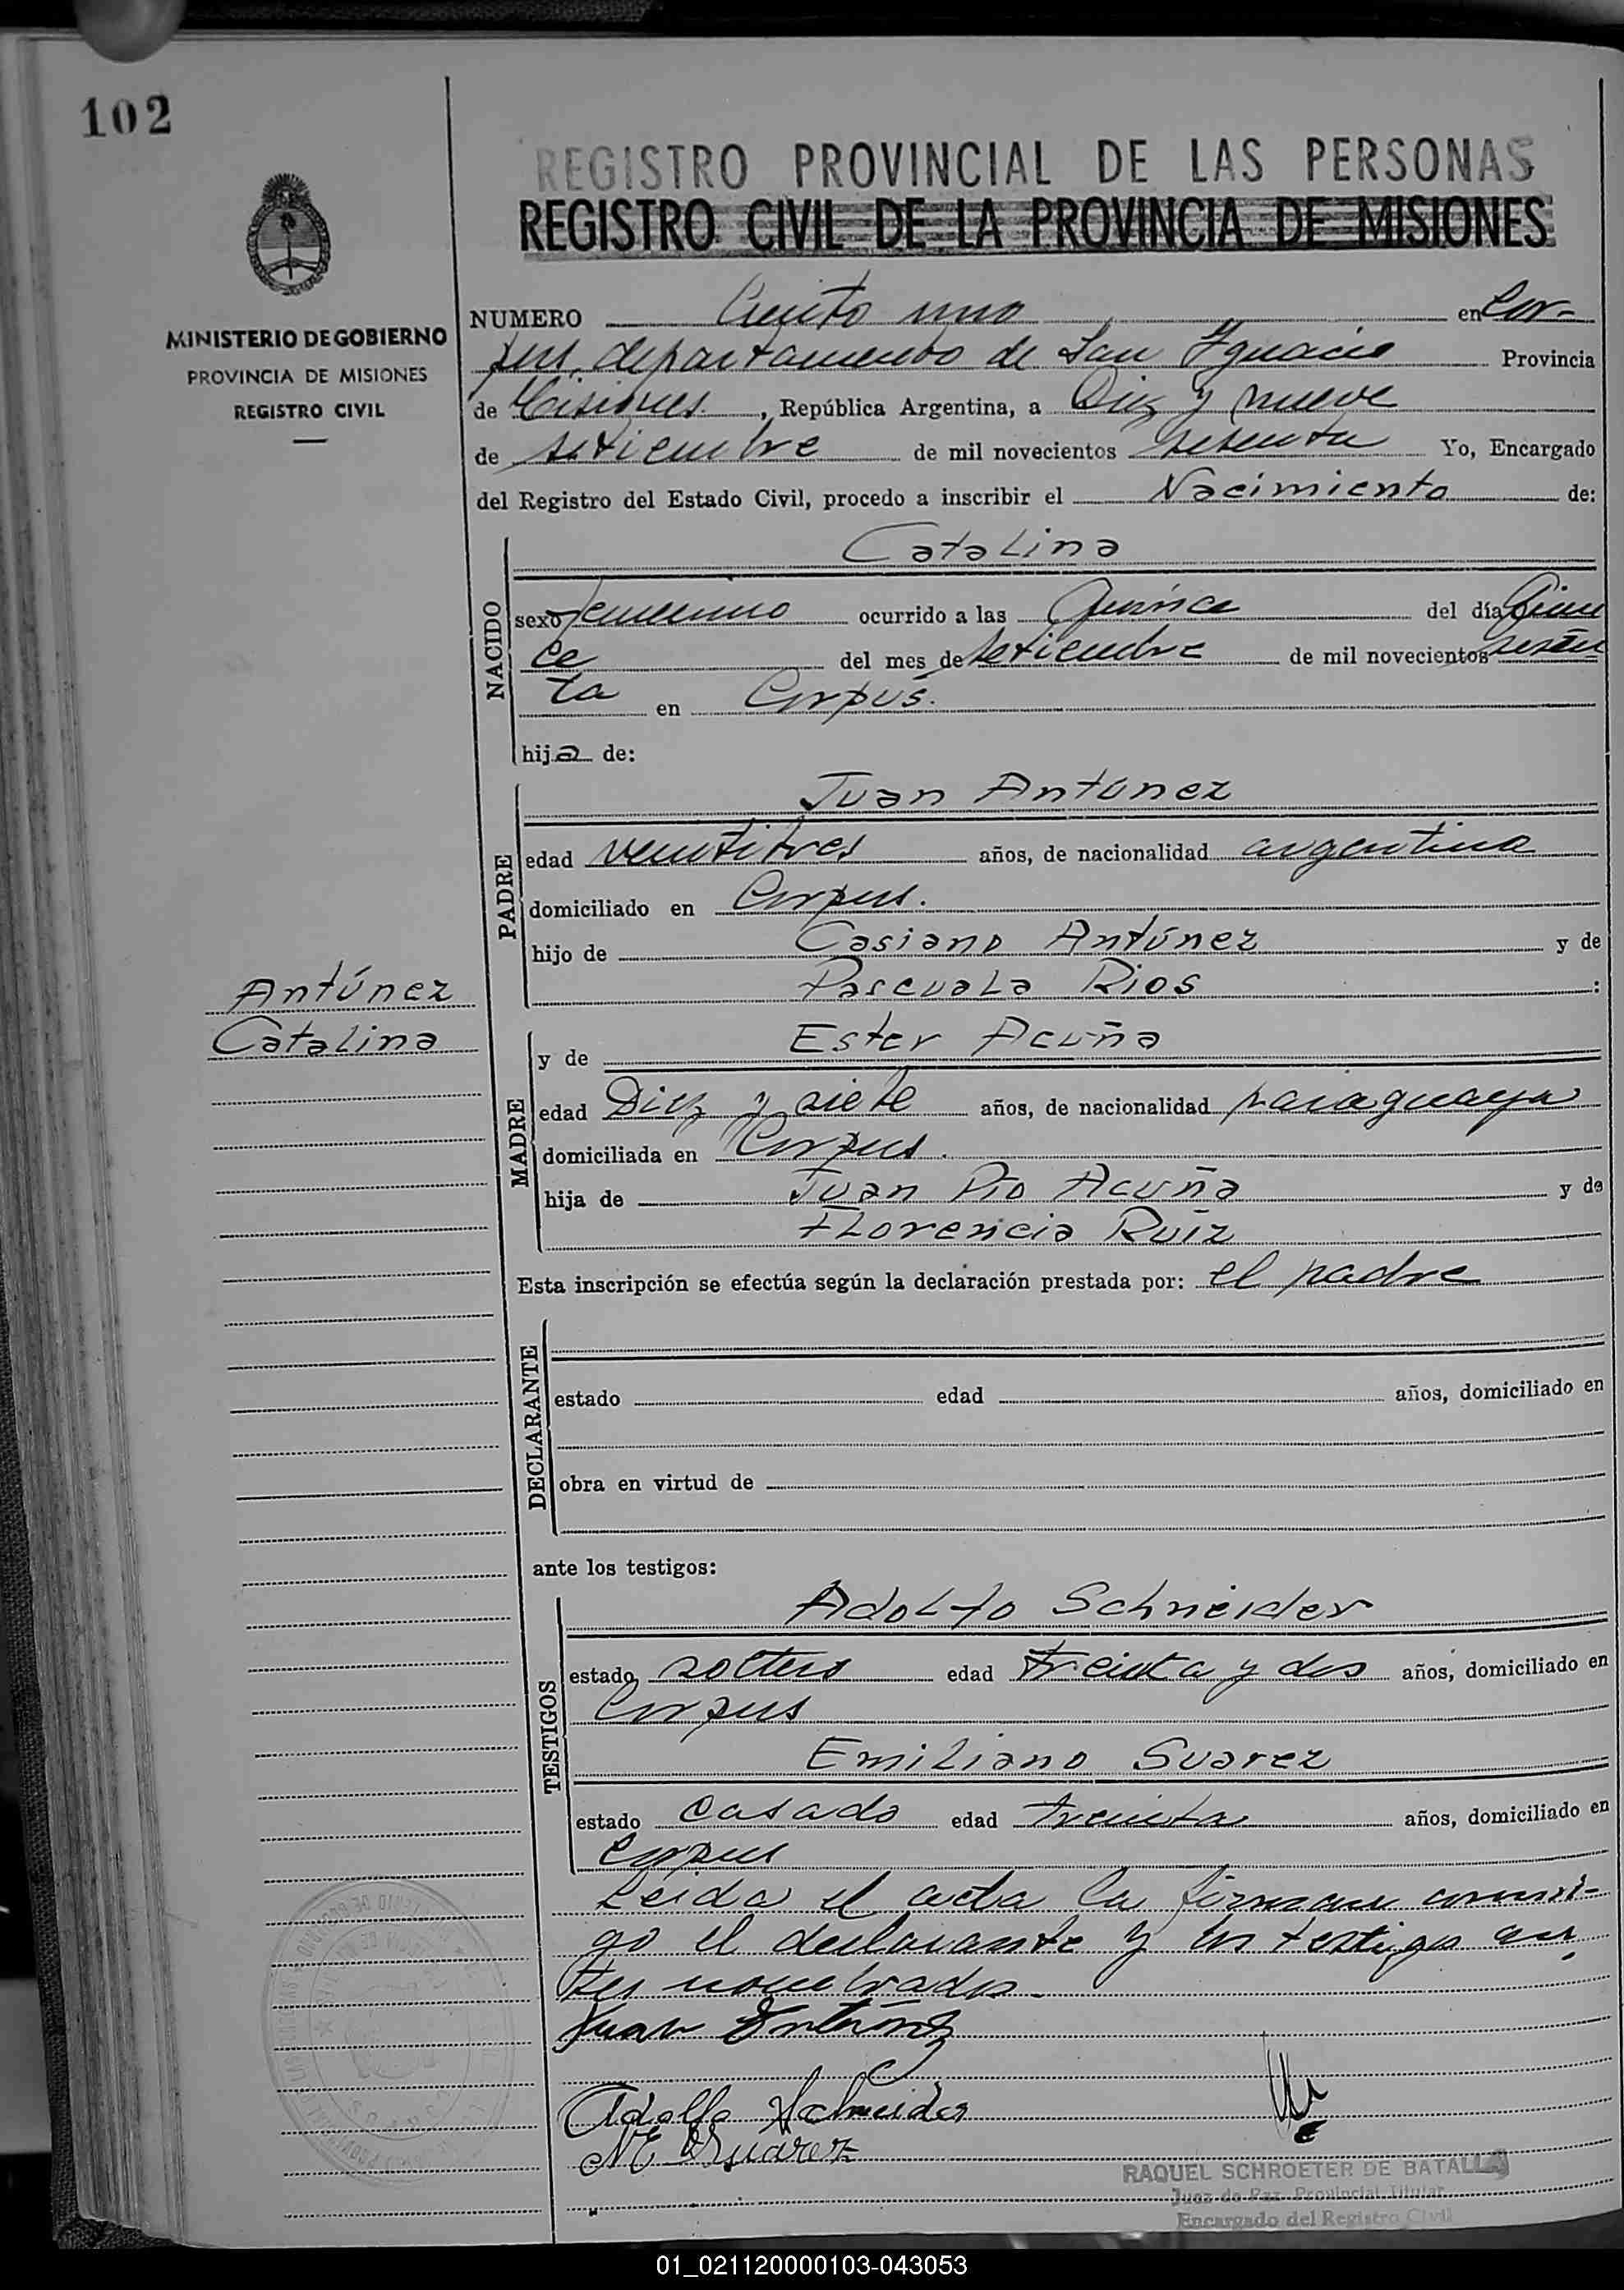 102
REGISTRO PROVINCIAL DE LAS PERSONAS
REGISTRO CIVIL DE LA PROVINCIA DE MISIONES
MINISTERIO DE GOBIERNO
PROVINCIA DE MISIONES
REGISTRO CIVIL
NUMERO Ciento uno en Cor-
pus, departamento de San Ygnacio Provincia
de Misiones, República Argentina, a Diez y nueve
de setiembre de mil novecientos sesenta Yo, Encargado
del Registro del Estado Civil, procedo a inscribir el Nacimiento de:
NACIDO
Catalina
sexo femenino ocurrido a las Quince del día Quin
ce del mes de setiembre de mil novecientos sesen
ta en Corpus.
hija de:
PADRE
Juan Antúnez
edad veintitres años, de nacionalidad argentina
domiciliado en Corpus.
hijo de Casiano Antúnez y de
Pascuala Rios :
Antúnez
Catalina
MADRE
y de Ester Acuña
edad Diez y siete años, de nacionalidad paraguaya
domiciliada en Corpus.
hija de Juan Pío Acuña y de
Florencia Ruíz
Esta inscripción se efectúa según la declaración prestada por: el padre
DECLARANTE
estado edad años, domiciliado en
obra en virtud de
ante los testigos:
TESTIGOS
Adolfo Schneider
estado soltero edad treinta y dos años, domiciliado en
Corpus
Emiliano Suarez
estado casado edad treinta años, domiciliado en
Corpus
Leida el acta la firman conmi-
go el declarante y los testigos an
tes nombrados.
Juan Antúnez
Adolfo Schneider
M E Suarez
RAQUEL SCHROETER DE BATALLA
Juez de Paz Provincial Titular
Encargado del Registro Civil
01_021120000103-043053